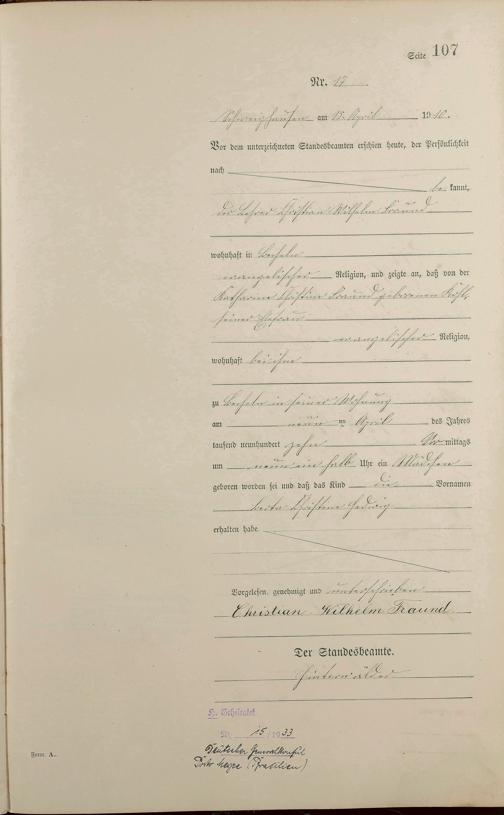 Seite 107
Nr. 17
Schweighausen am 13. April 1910.
Vor dem unterzeichneten Standesbeamten erschien heute, der Persönlichkeit
nach
be kannt,
der Lehrer Christian Wilhelm Fraund
wohnhaft in Becheln
evangelischer Religion, und zeigte an, daß von der
Katharine Christine Fraund geborenen
seiner Ehefrau
evangelischer Religion,
wohnhaft bei ihm
zu Becheln in seiner Wohnung
am neun ten April des Jahres
tausend neunhundert zehn Vor mittags
um neun ein halb Uhr ein Mädchen
geboren worden sei und daß das Kind die Vornamen
Christine Hedwig
erhalten habe.
Vorgelesen, genehmigt und unterschrieben
Christian Wilhelm Fraund
Der Standesbeamte.
Hinterwälder
Nr. 15/1933
Deutsches Generalkonsulat
(Brasilien)
Form. A.